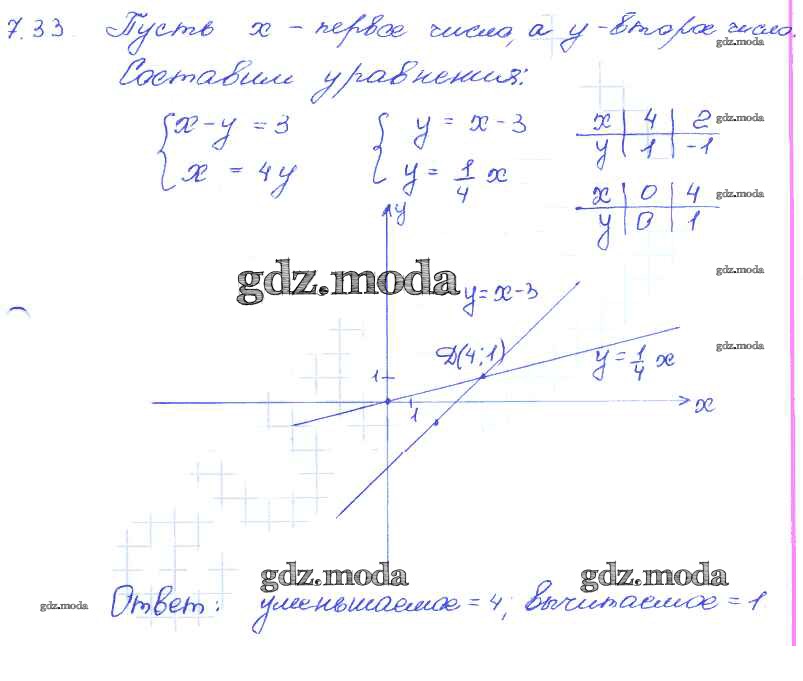 7.33 Пусть x - первое число, а y - второе число.
gdz.moda
Составим уравнения:
{ x - y = 3
x = 4y
{ y = x - 3
y = 1/4 x
x | 4 | 2
y | 1 | -1
gdz.moda
x | 0 | 4
y | 0 | 1
gdz.moda
y
gdz.moda
gdz.moda
y = x - 3
D(4;1)
gdz.moda
y = 1/4 x
1
1
x
gdz.moda
gdz.moda
gdz.moda
Ответ: уменьшаемое = 4; вычитаемое = 1